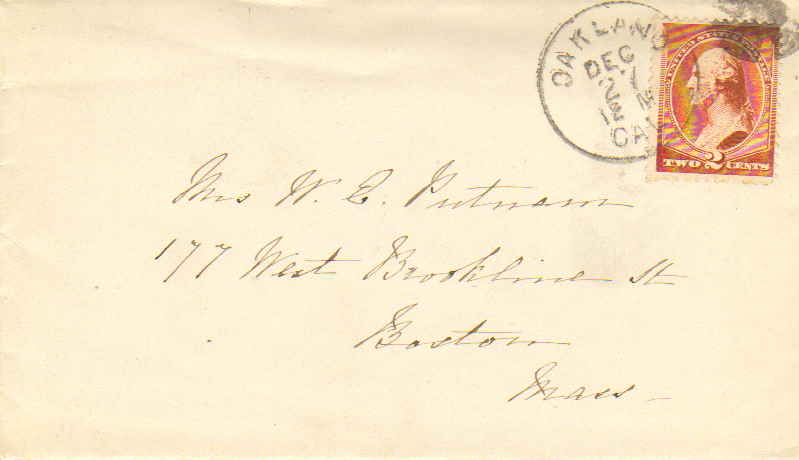 OAKLAND
DEC
M
CAL
UNITED STATES POSTAGE
TWO 2 CENTS
Mrs W. E. Putnam
177 West Brookline St
Boston
Mass